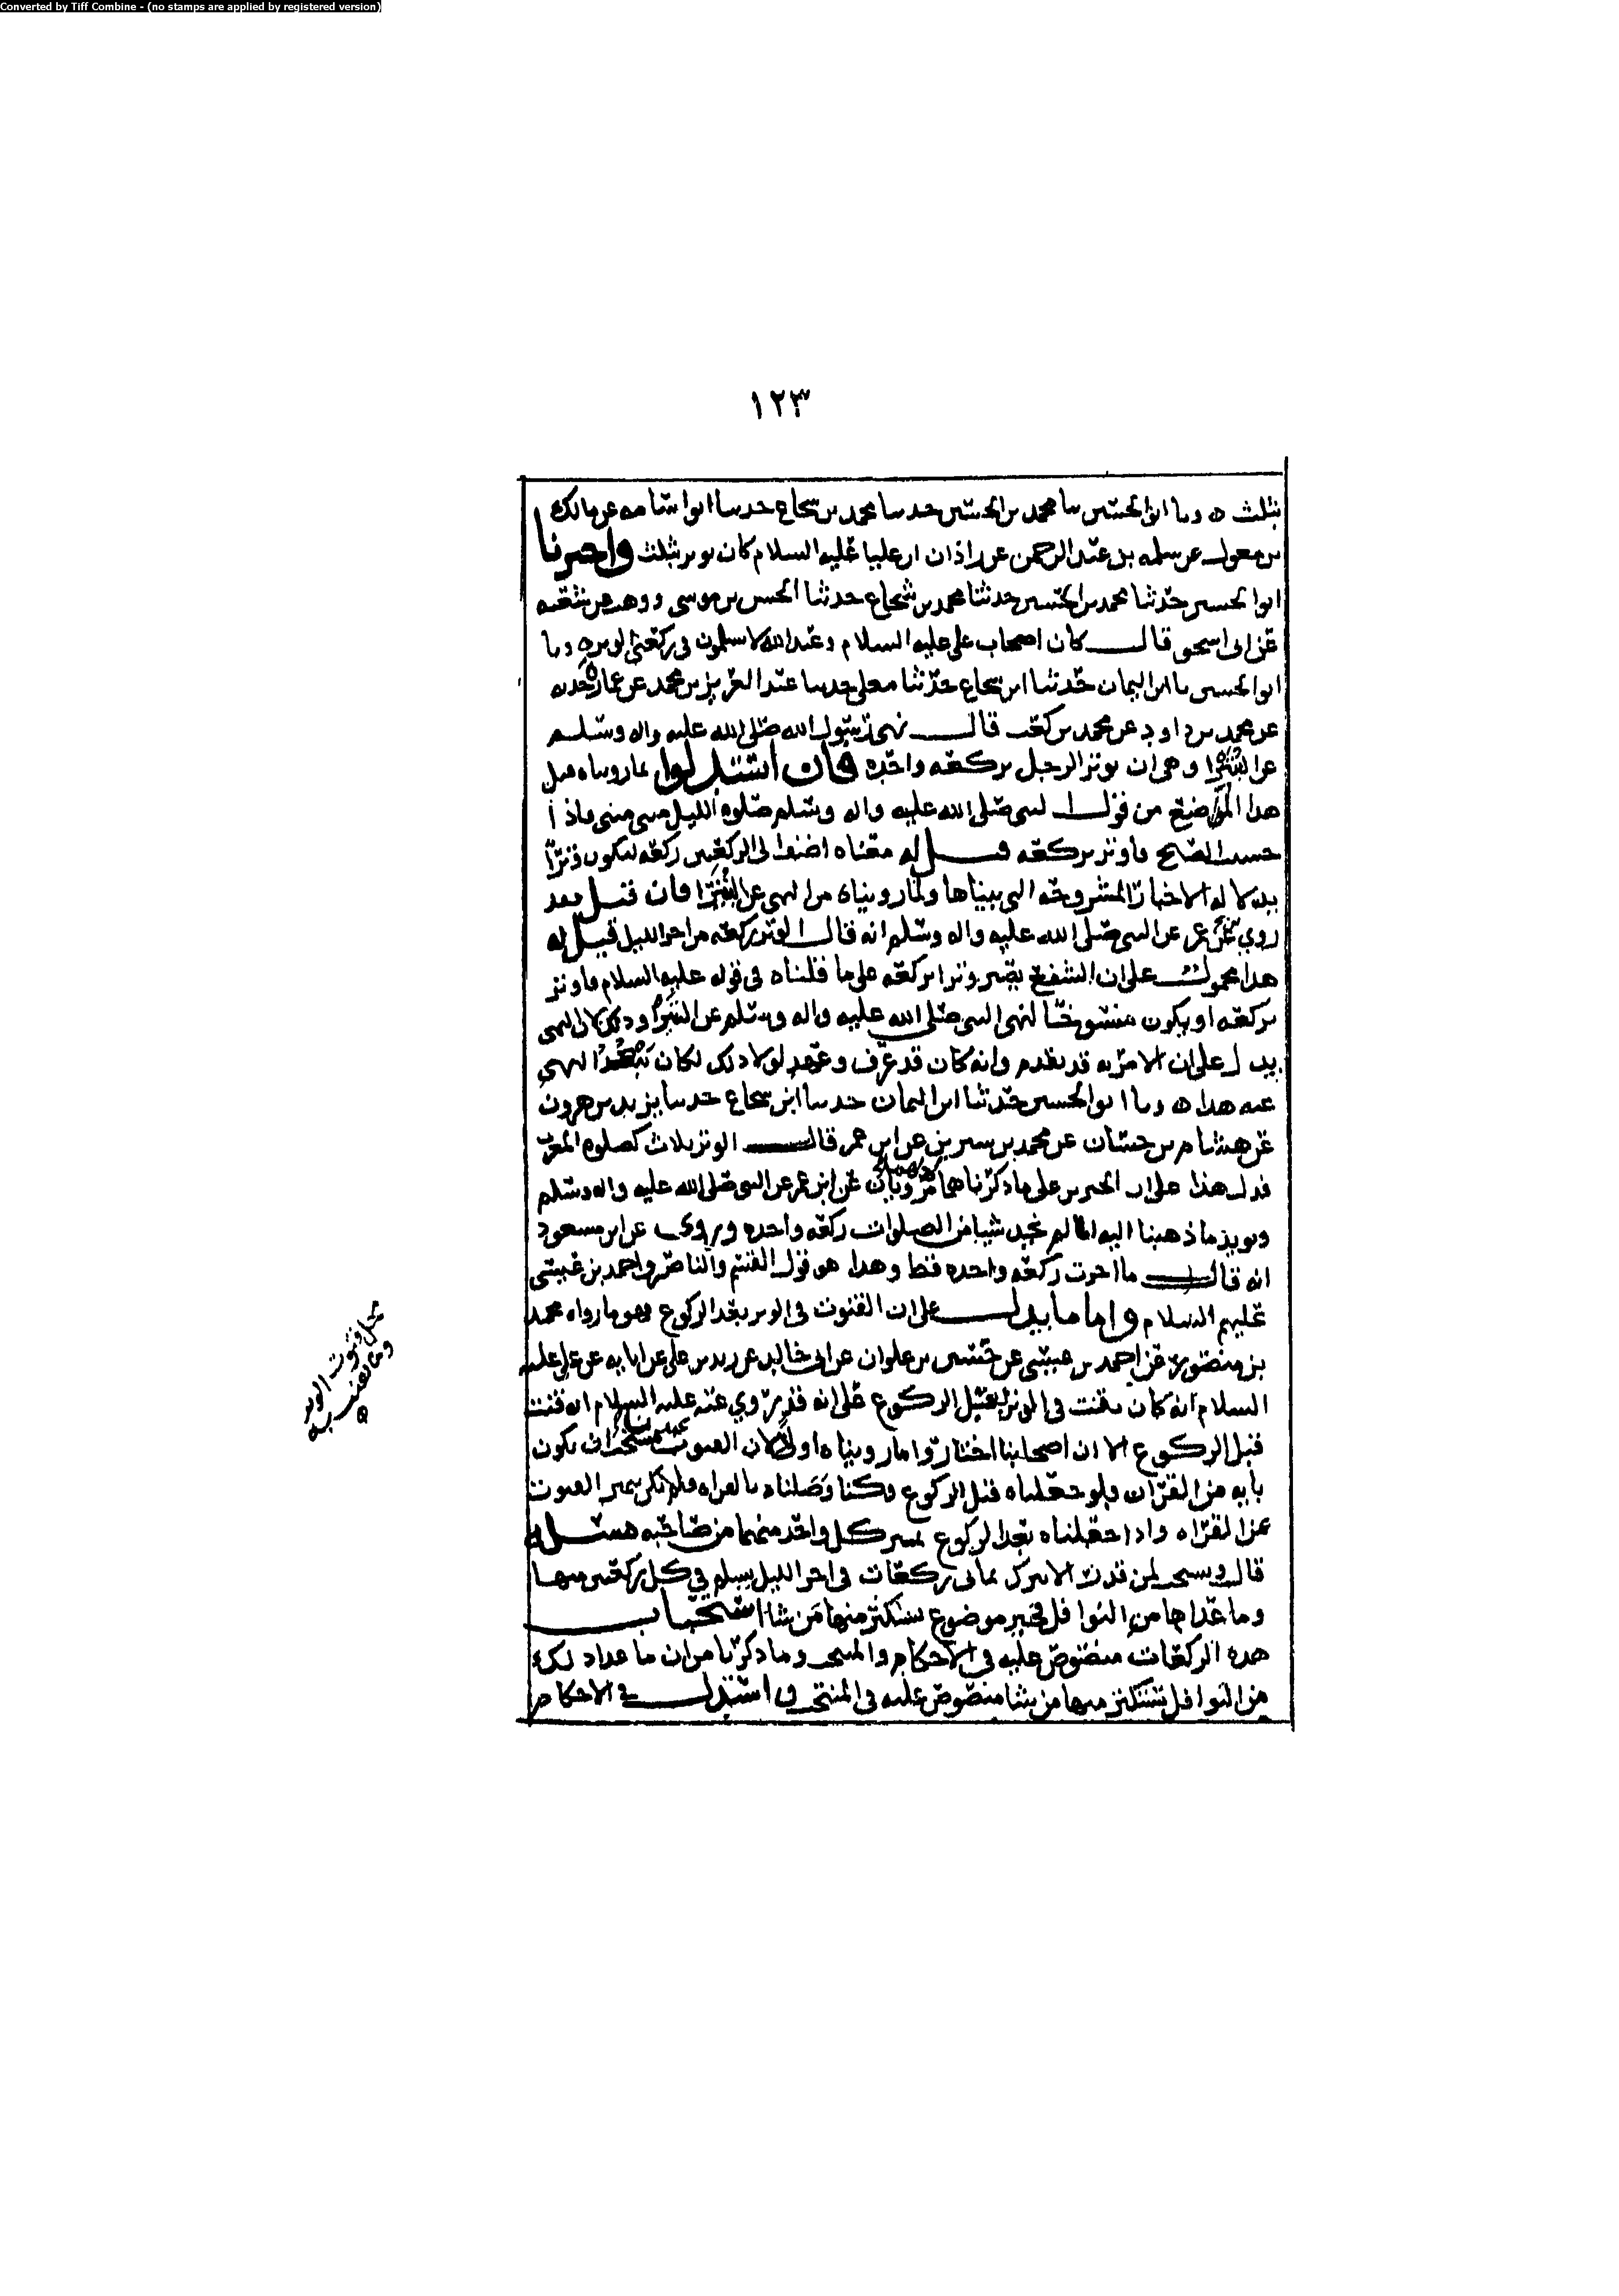 Converted by Tiff Combine - (no stamps are applied by registered version)
١٢٣
بثلث ه وبا ابوالحسين با محمد بن الحسين حدثنا محمد بن شجاع حدثنا ابواسامه عن مالك
بن معول عن سلمه بن عبد الرحمن عن زاذان ان عليا عليه السلام كان يوتر بثلث واخبرنا
ابوالحسين حدثنا محمد بن الحسين حدثنا محمد بن شجاع حدثنا الحسن بن موسى ووهب عن شعبه
عن ابى اسحق قال كان اصحاب على عليه السلام وعبد الله لا يسلمون فى ركعتى الوتر ه وبا
ابوالحسين با ابن اليمان حدثنا ابن شجاع حدثنا معلى حدثنا عبد العزيز بن محمد عن عماره
عن محمد بن داود عن محمد بن كعب قال نهى رسول الله صلى الله عليه واله وسلم
عن البتيرا وهى ان يوتر الرجل بركعه واحده فان استدلوا بما رويناه قبل
هذا الموضع من قول النبى صلى الله عليه واله وسلم صلوه الليل مثنى مثنى فاذا
خشيت الصبح فاوتر بركعه قيل له معناه اضفها الى الركعتين ركعه لتكون وترا
بدلاله الاخبار المشروحه التى بيناها ولما رويناه من النهى عن البتيرا فان قيل فقد
روي عن ابن عمر عن النبى صلى الله عليه واله وسلم انه قال الوتر ركعه من اخر الليل قيل له
هذا محمول على ان الشفع يصير وترا بركعه على ما قلناه فى قوله عليه السلام فاوتر
بركعه او يكون منسوخا لنهى النبى صلى الله عليه واله وسلم عن البتيرا وذلك لان النهى
يدل على ان الامر به قد تقدم وانه كان قد عرف وعهد لولا ذلك لكان النهى
عنه هذا ه وبا ابوالحسين حدثنا ابن اليمان حدثنا ابن شجاع حدثنا يزيد بن هرون
عن هشام بن حسان عن محمد بن سيرين عن ابن عمر قال الوتر ثلاث كصلوه المغرب
فدل هذا على ان الخبرين على ما ذكرنا هما مرويان عن ابن عمر عن النبى صلى الله عليه واله وسلم
ويويد ما ذهبنا اليه انا لم نجد شيا من الصلوات ركعه واحده وروى عن ابن مسعود
انه قال ما اجزت ركعه واحده قط وهذا هو قول القسم والناصر واحمد بن عيسى
عليهم السلام واما ما يدل على ان القنوت فى الوتر بعد الركوع فهو ما رواه محمد
بن منصور عن احمد بن عيسى عن حسين بن علوان عن ابى خالد عن زيد بن على عن ابايه عن على عليه
السلام انه كان يقنت فى الوتر قبل الركوع على انه قد روي عنه عليه السلام انه قنت
قبل الركوع الا ان اصحابنا اختاروا ما رويناه اولا لان القنوت عندنا يستحب ان يكون
بايه من القران فلو جعلناه قبل الركوع وكنا وصلناه بالقراه ولم يكن يتميز القنوت
عن القراه واذا جعلناه بعد الركوع تميز كل واحد منهما من صاحبه مسئله
قال ويستحب لمن قدر ان لا يترك ثمانى ركعات فى اخر الليل يسلم في كل ركعتين منها
وما عداها من النوافل فخير موضوع يستكثر منها من شا استحباب
هذه الركعات منصوص عليه فى الاحكام والمنتخب وما ذكرنا من ان ما عدا ذلك
من النوافل يستكثر منها من شا منصوص عليه فى المنتخب واستدل فى الاحكام
محل قنوت الوتر
وما يقنت به